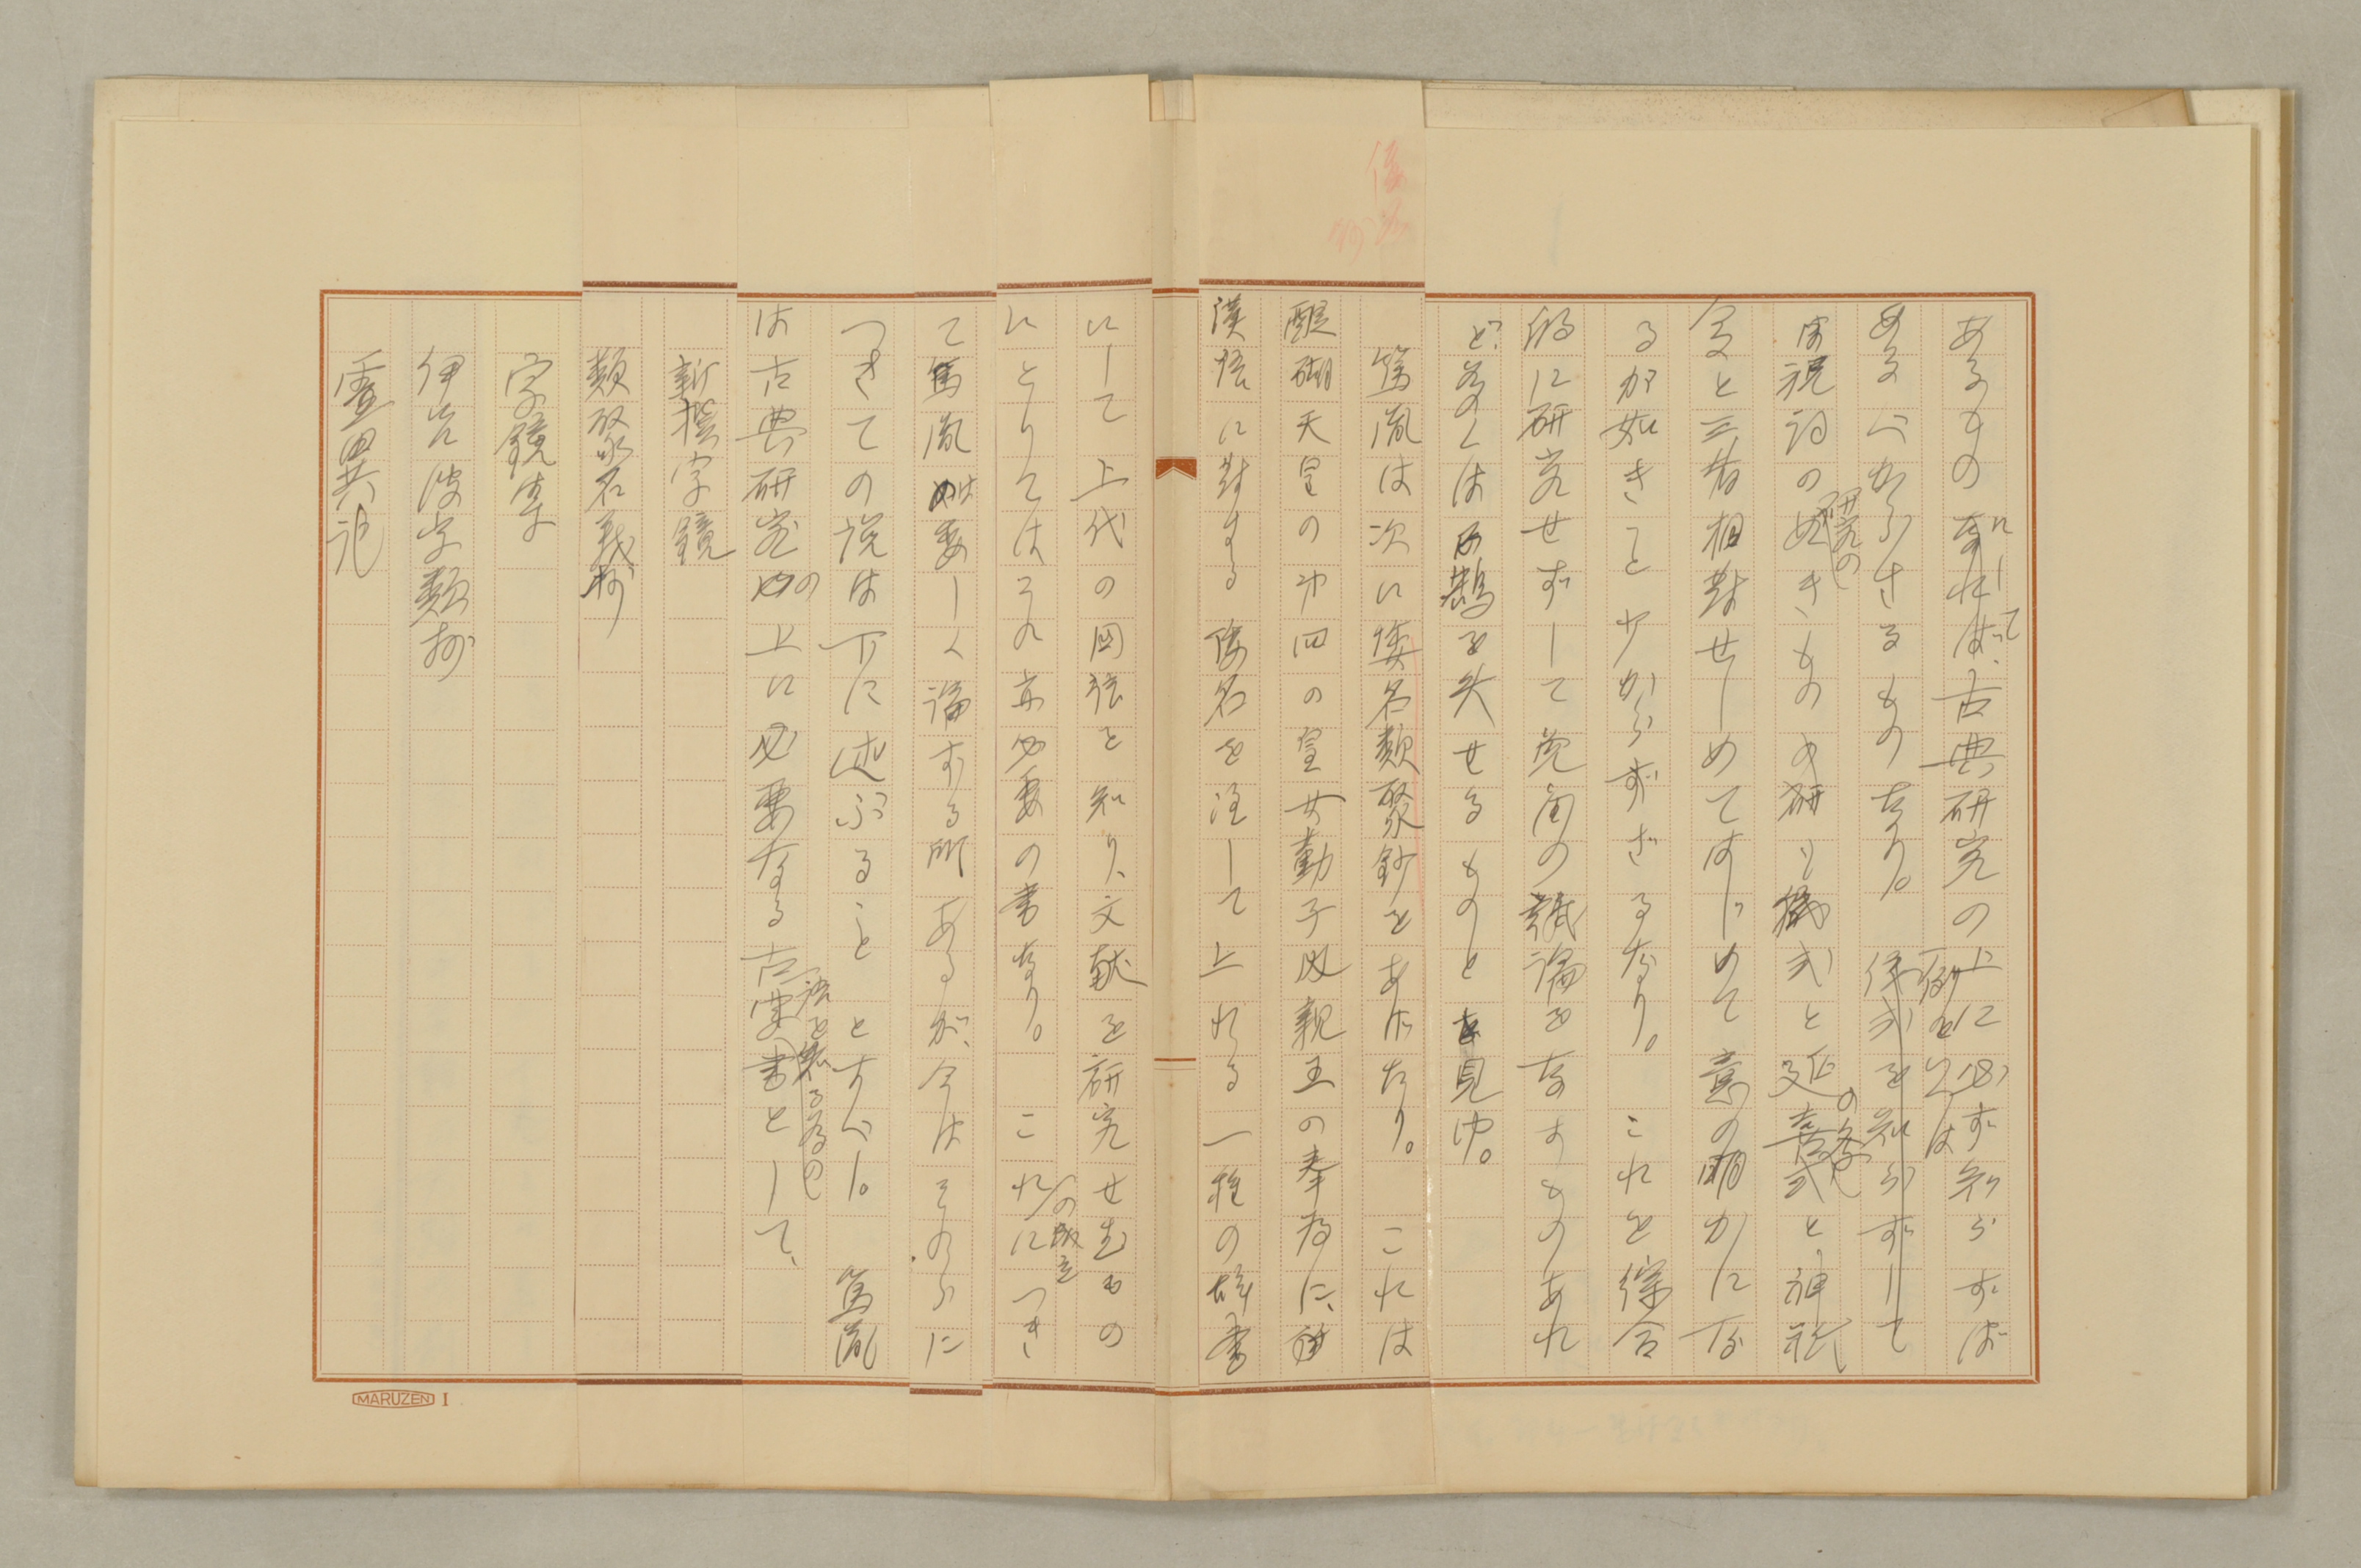 あるものにして、古典研究の上に必ず知らずば
あるべからざるものなり。例と
は祝詞の研究の如きもの儀式と延喜式の祭と神祇
令と三者相対せしめてはじめて意の明かになる
るが如きこと少からずざるなり。これを綜合
的に研究せずして覚束の議論をなすものあれ
ど、多くは正鵠を失せるものと見ゆ。
篤胤は次に倭名類聚鈔をあげたり。これは
醍醐天皇の第四の皇女勤子内親王の奉為に、
漢語に対する倭名を注して上れる一種の辞書
にして上代の国語を知り、文献を研究せむもの
にとりてはその亦必要の書なり。これの成立につき
て篤胤は委しく論ずる所あるが、今はそのらに
つきての説は下に述ぶることとすべし。篤胤
は古典研究の上に必要なる古語を知る為の書として、
新撰字鏡
類聚名義抄
字鏡集
伊呂波字類抄
霊異記
MARUZEN I